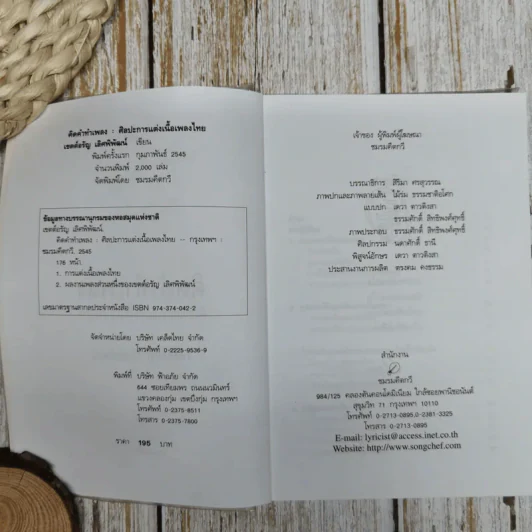 คิดคำทำเพลง : ศิลปะการแต่งเนื้อเพลงไทย
เขตต์อรัญ เลิศพิพัฒน์ เขียน
พิมพ์ครั้งแรก กุมภาพันธ์ 2545
จำนวนพิมพ์ 2,000 เล่ม
จัดพิมพ์โดย ชมรมคีตกวี
ข้อมูลทางบรรณานุกรมของหอสมุดแห่งชาติ
เขตต์อรัญ เลิศพิพัฒน์.
คิดคำทำเพลง : ศิลปะการแต่งเนื้อเพลงไทย -- กรุงเทพฯ :
ชมรมคีตกวี, 2545
176 หน้า.
1. การแต่งเนื้อเพลงไทย
2. ผลงานเพลงส่วนหนึ่งของเขตต์อรัญ เลิศพิพัฒน์
เลขมาตรฐานสากลประจำหนังสือ ISBN 974-374-042-2
จัดจำหน่ายโดย บริษัท เคล็ดไทย จำกัด
โทรศัพท์ 0-2225-9536-9
พิมพ์ที่ บริษัท ฟ้าอภัย จำกัด
644 ซอยเทียมพร ถนนนวมินทร์
แขวงคลองกุ่ม เขตบึงกุ่ม กรุงเทพฯ
โทรศัพท์ 0-2375-8511
โทรสาร 0-2375-7800
ราคา 195 บาท
เจ้าของ ผู้พิมพ์ผู้โฆษณา
ชมรมคีตกวี
บรรณาธิการ สิริมา ศรสุวรรณ
ภาพปกและภาพลายเส้น ไม้ร่ม ธรรมชาติอโศก
แบบปก เดวา ดาวดึงสา
ธรรมศักดิ์ สิทธิพงศ์สุทธิ์
ภาพประกอบ ธรรมศักดิ์ สิทธิพงศ์สุทธิ์
ศิลปกรรม นดาศักดิ์ ธานี
พิสูจน์อักษร เดวา ดาวดึงสา
ประสานงานการผลิต ตรงคม คงธรรม
สำนักงาน
ชมรมคีตกวี
984/125 คลองตันคอนโดมิเนียม ใกล้ซอยพาณิชอนันต์
สุขุมวิท 71 กรุงเทพฯ 10110
โทรศัพท์ 0-2713-0895,0-2381-3325
โทรสาร 0-2713-0895
E-mail: lyricist@access.inet.co.th
Website: http://www.songchef.com